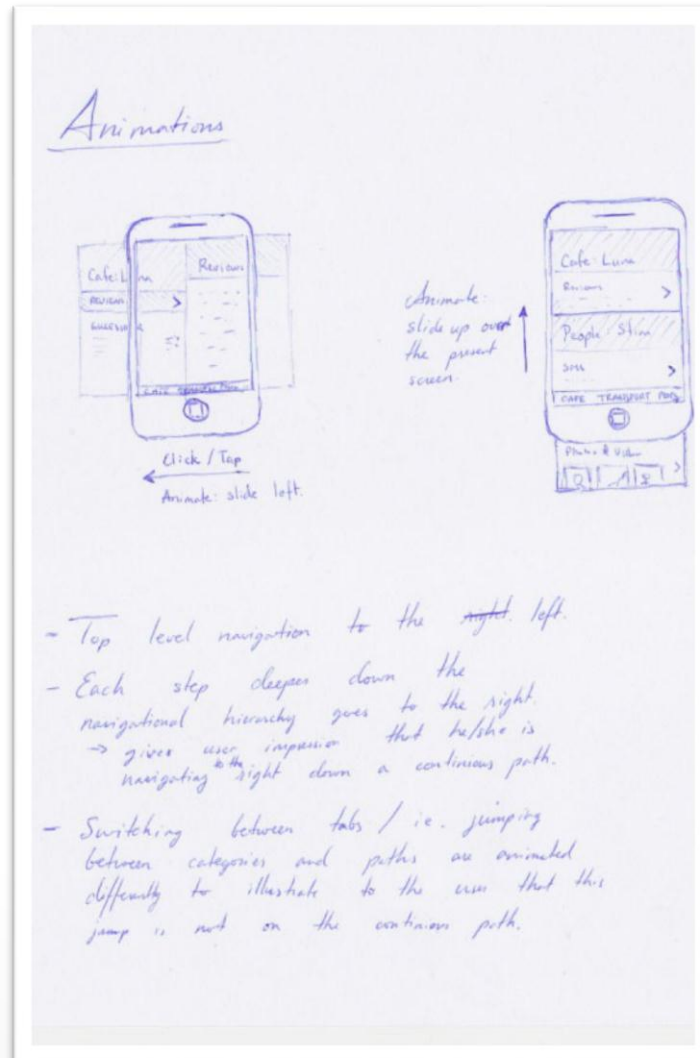 Animations
Cafe: Luna
Reviews
REVIEWS >
CAFE
Click / Tap
Animate: slide left.
Animate:
slide up over
the present
screen.
Cafe: Luna
Reviews >
People
>
CAFE TRANSPORT
>
- Top level navigation to the right. left.
- Each step deeper down the
navigational hierarchy goes to the right.
→ gives user impression that he/she is
navigating to the right down a continious path.
- Switching between tabs / ie. jumping
between categories and paths are animated
differently to illustrate to the user that this
jump is not on the continious path.